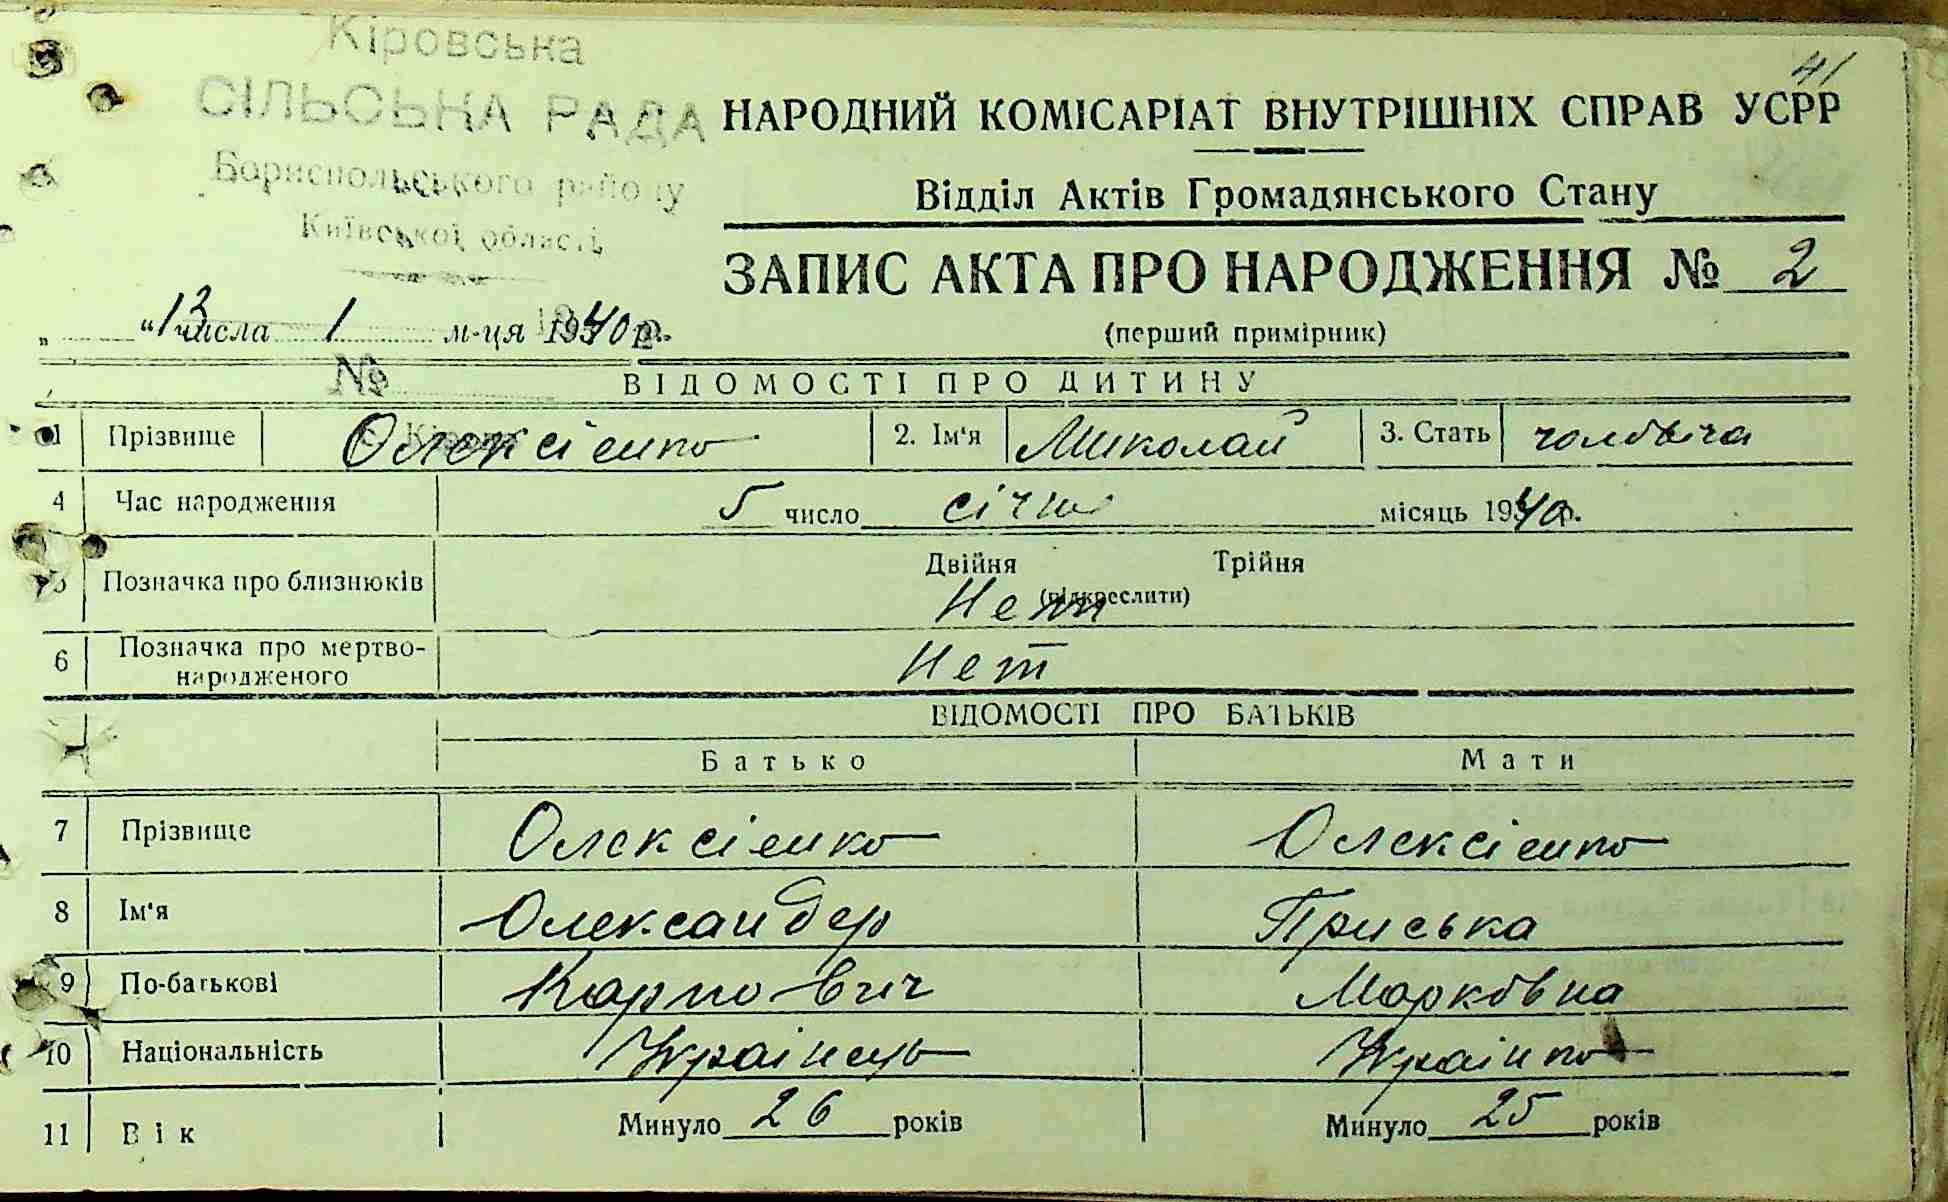 41
Кіровська
СІЛЬСЬКА РАДА
Бориспольського району
Київської області
НАРОДНИЙ КОМІСАРІАТ ВНУТРІШНІХ СПРАВ УСРР
Відділ Актів Громадянського Стану
ЗАПИС АКТА ПРО НАРОДЖЕННЯ № 2
(перший примірник)
„ "13 числа 1 м-ця 1940 р.
№
ВІДОМОСТІ ПРО ДИТИНУ
1 Прізвище Олексієнко 2. Ім'я Миколай 3. Стать
4 Час народження 5 число січня місяць 1940 р.
5 Позначка про близнюків Двійня Трійня
(підкреслити)
Нет
6 Позначка про мертво-
народженого Нет
ВІДОМОСТІ ПРО БАТЬКІВ
Батько Мати
7 Прізвище Олексієнко Олексієнко
8 Ім'я Олександер Приська
9 По-батькові Карпович Марковна
10 Національність Українець Українка
11 Вік Минуло 26 років Минуло 25 років